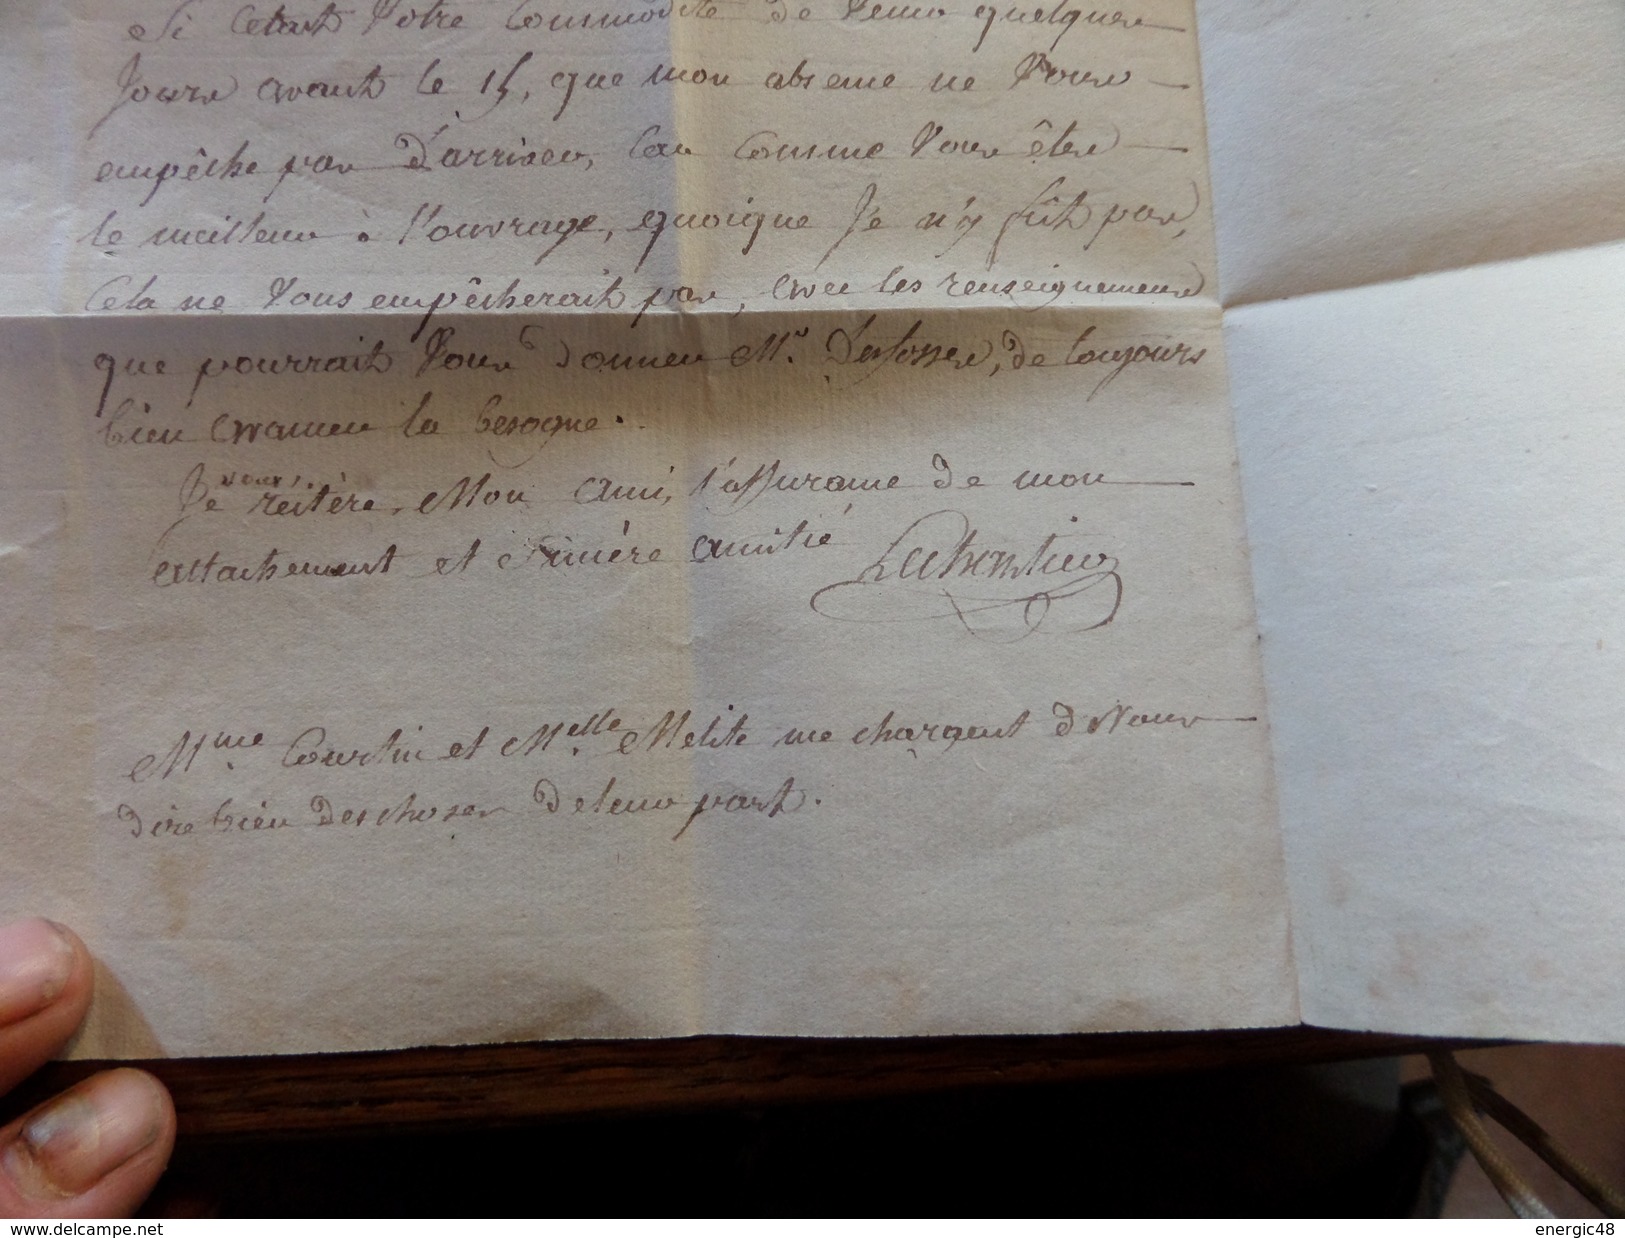 Si c'etait votre commodité de venir quelques
jours avant le 15, que mon absence ne vous
empêche pas d'arriver, car comme vous êtes
le meilleur à l'ouvrage, quoique je n'y fût pas,
cela ne vous empêcherait pas, avec les renseignemens
que pourrait vous donner Mr. Desfosses, de toujours
bien avancer la besogne.
Je vous réitère, Mon ami, l'assurance de mon
attachement et sincère amitié
Mme. Courtin et Melle. Melite me chargent de vous
dire bien des choses de leur part.
delcampe.net
energic48